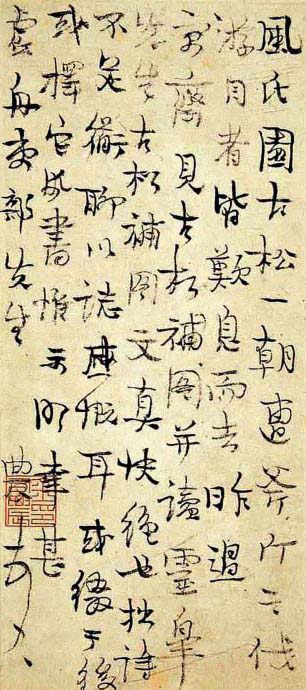 風氏園古松一朝遭斧斤之伐
游目者皆歎息而去昨過
齋見古松補圖并讀靈皋
先生古松補圖文真快絕也拙詩
不足聊以誌感慨耳或綴于後
或擇它書惟示明幸甚
虛舟吏部先生